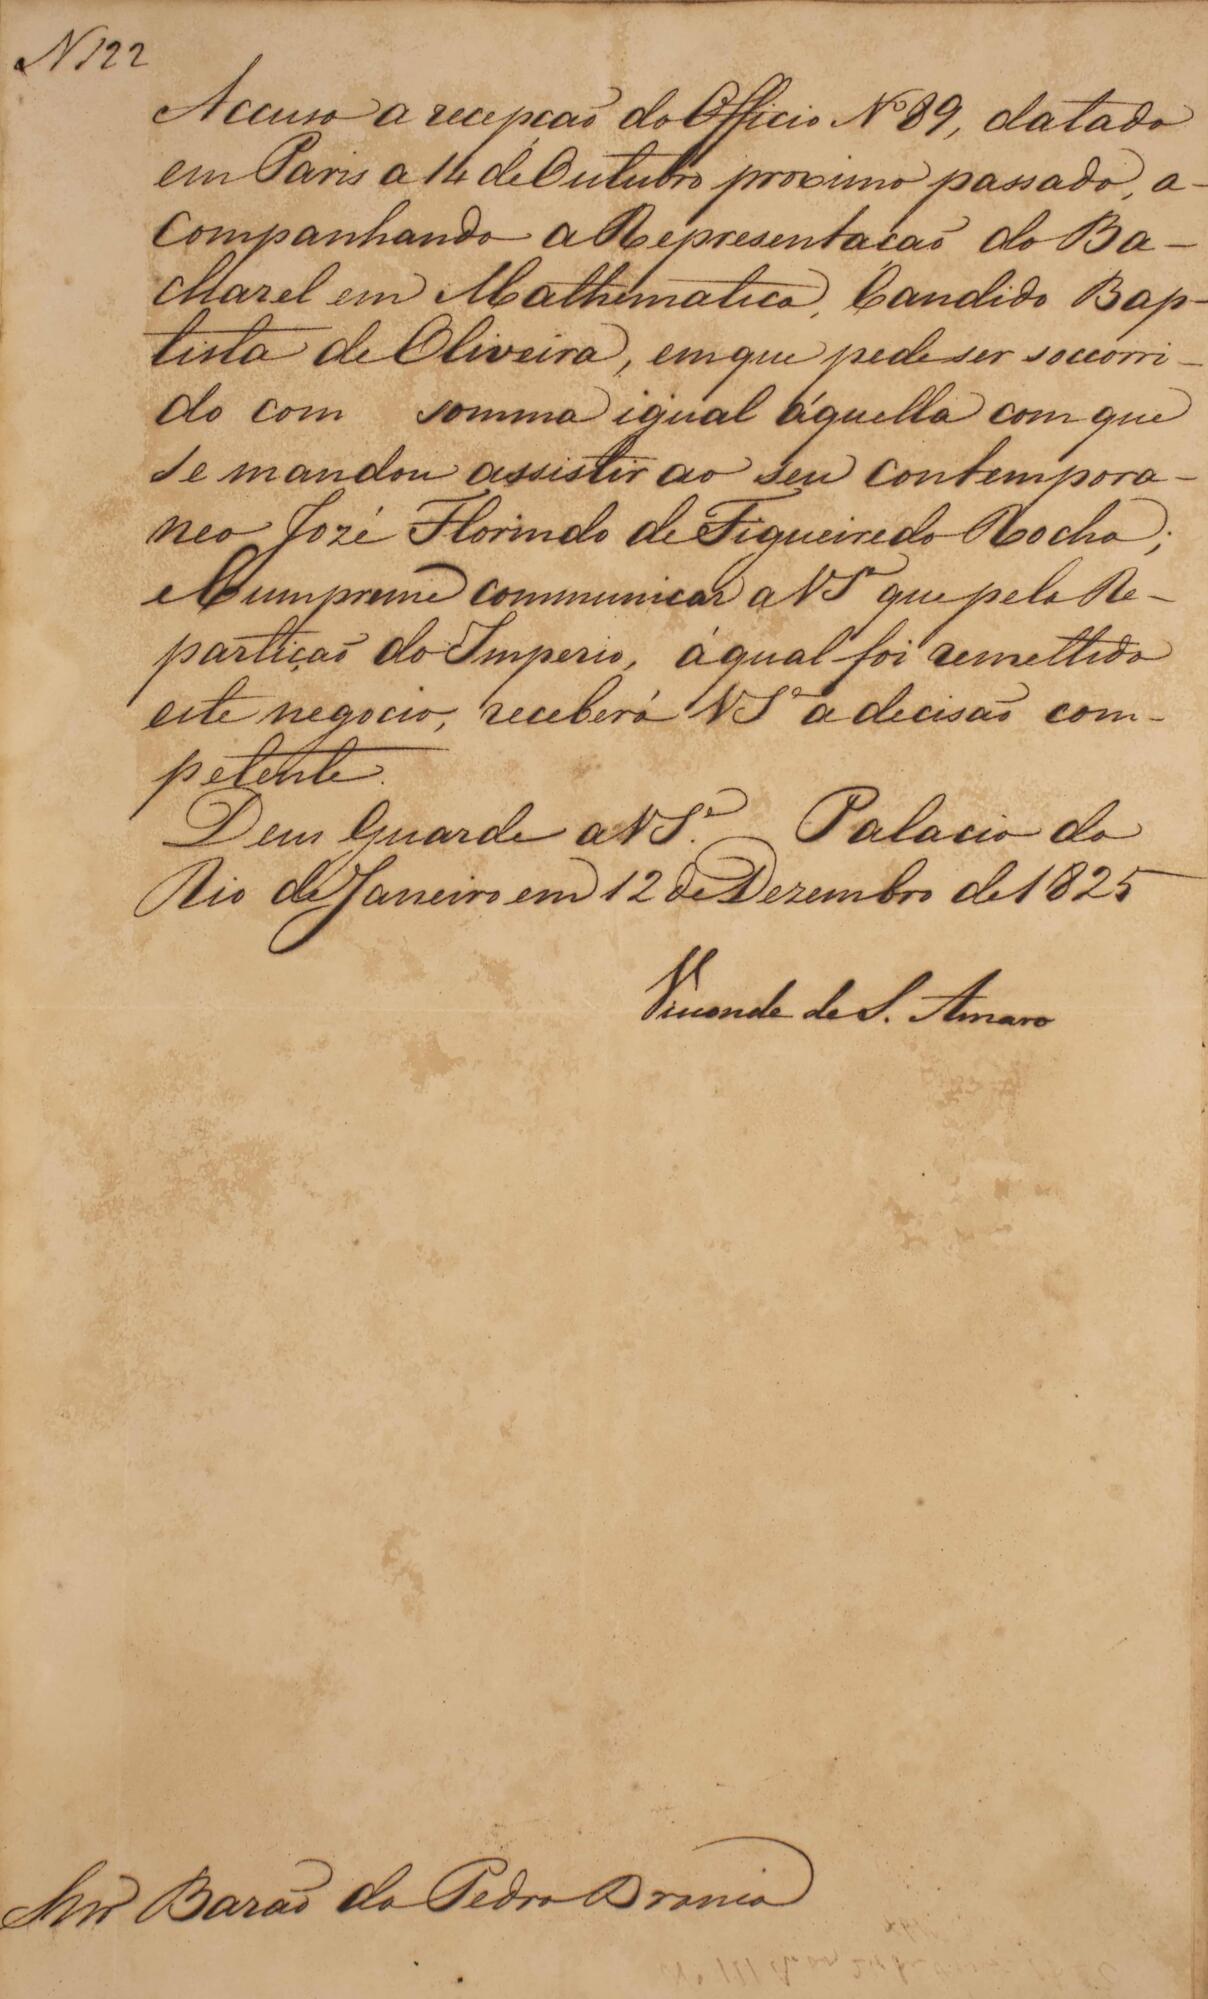 N 122
Accuso a recepção do Officio Nº 89, datado
em Paris a 14 de Outubro proximo passado, a-
companhando a Representação do Ba-
charel em Mathematica, Candido Bap-
tista de Oliveira, em que pede ser soccorri-
do com somma igual áquella com que
se mandou assistir ao seu contempora-
neo Jozé Florindo de Figueiredo Rocha;
e Cumpreme communicar a VSª que pela Re-
partição do Imperio, á qual foi remettido
este negocio, receberá VSª a decisão com-
petente.
Deus Guarde a VSª. Palacio do
Rio de Janeiro em 12 de Dezembro de 1825
Visconde de S. Amaro
Snr Barão da Pedra Branca